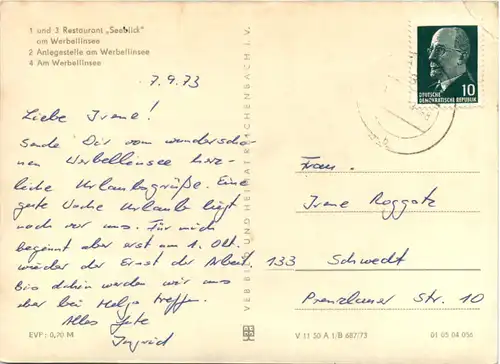 1 und 3 Restaurant „Seeblick"
am Werbellinsee
2 Anlegestelle am Werbellinsee
4 Am Werbellinsee
7.9.73
Liebe Irene!
Sende Dir vom wunderschö-
nen Werbellinsee herz-
liche Urlaubsgrüße. Eine
gute Woche Urlaub liegt
noch vor uns. Für mich
beginnt aber erst am 1. Okt.
wieder der Ernst der Arbeit.
Bis dahin werden wir uns
aber bei Helga treffen.
Alles Gute
Ingrid
EVP: 0,20 M
VEB BILD UND HEIMAT REICHENBACH I. V.
10
DEUTSCHE
DEMOKRATISCHE REPUBLIK
Frau
Irene Roggatz
133 Schwedt
Prenzlauer Str. 10
V 11 50 A 1/B 687/73
01 05 04 056